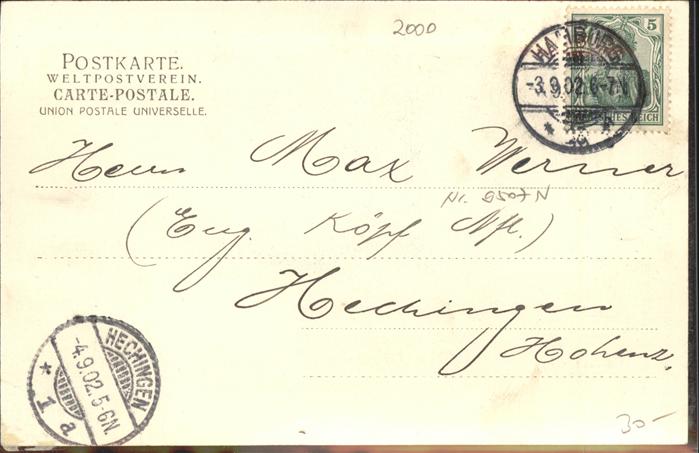 2000
POSTKARTE.
WELTPOSTVEREIN.
CARTE-POSTALE.
UNION POSTALE UNIVERSELLE.
5
HAMBURG
-3.9.02.6-7N
DEUTSCHES REICH
Herrn Max Werner
Nr. 9507N
(Eug. Köpf Nfl.)
Hechingen
Hohenz.
HECHINGEN
-4.9.02.5-6N.
* 1 a
30-